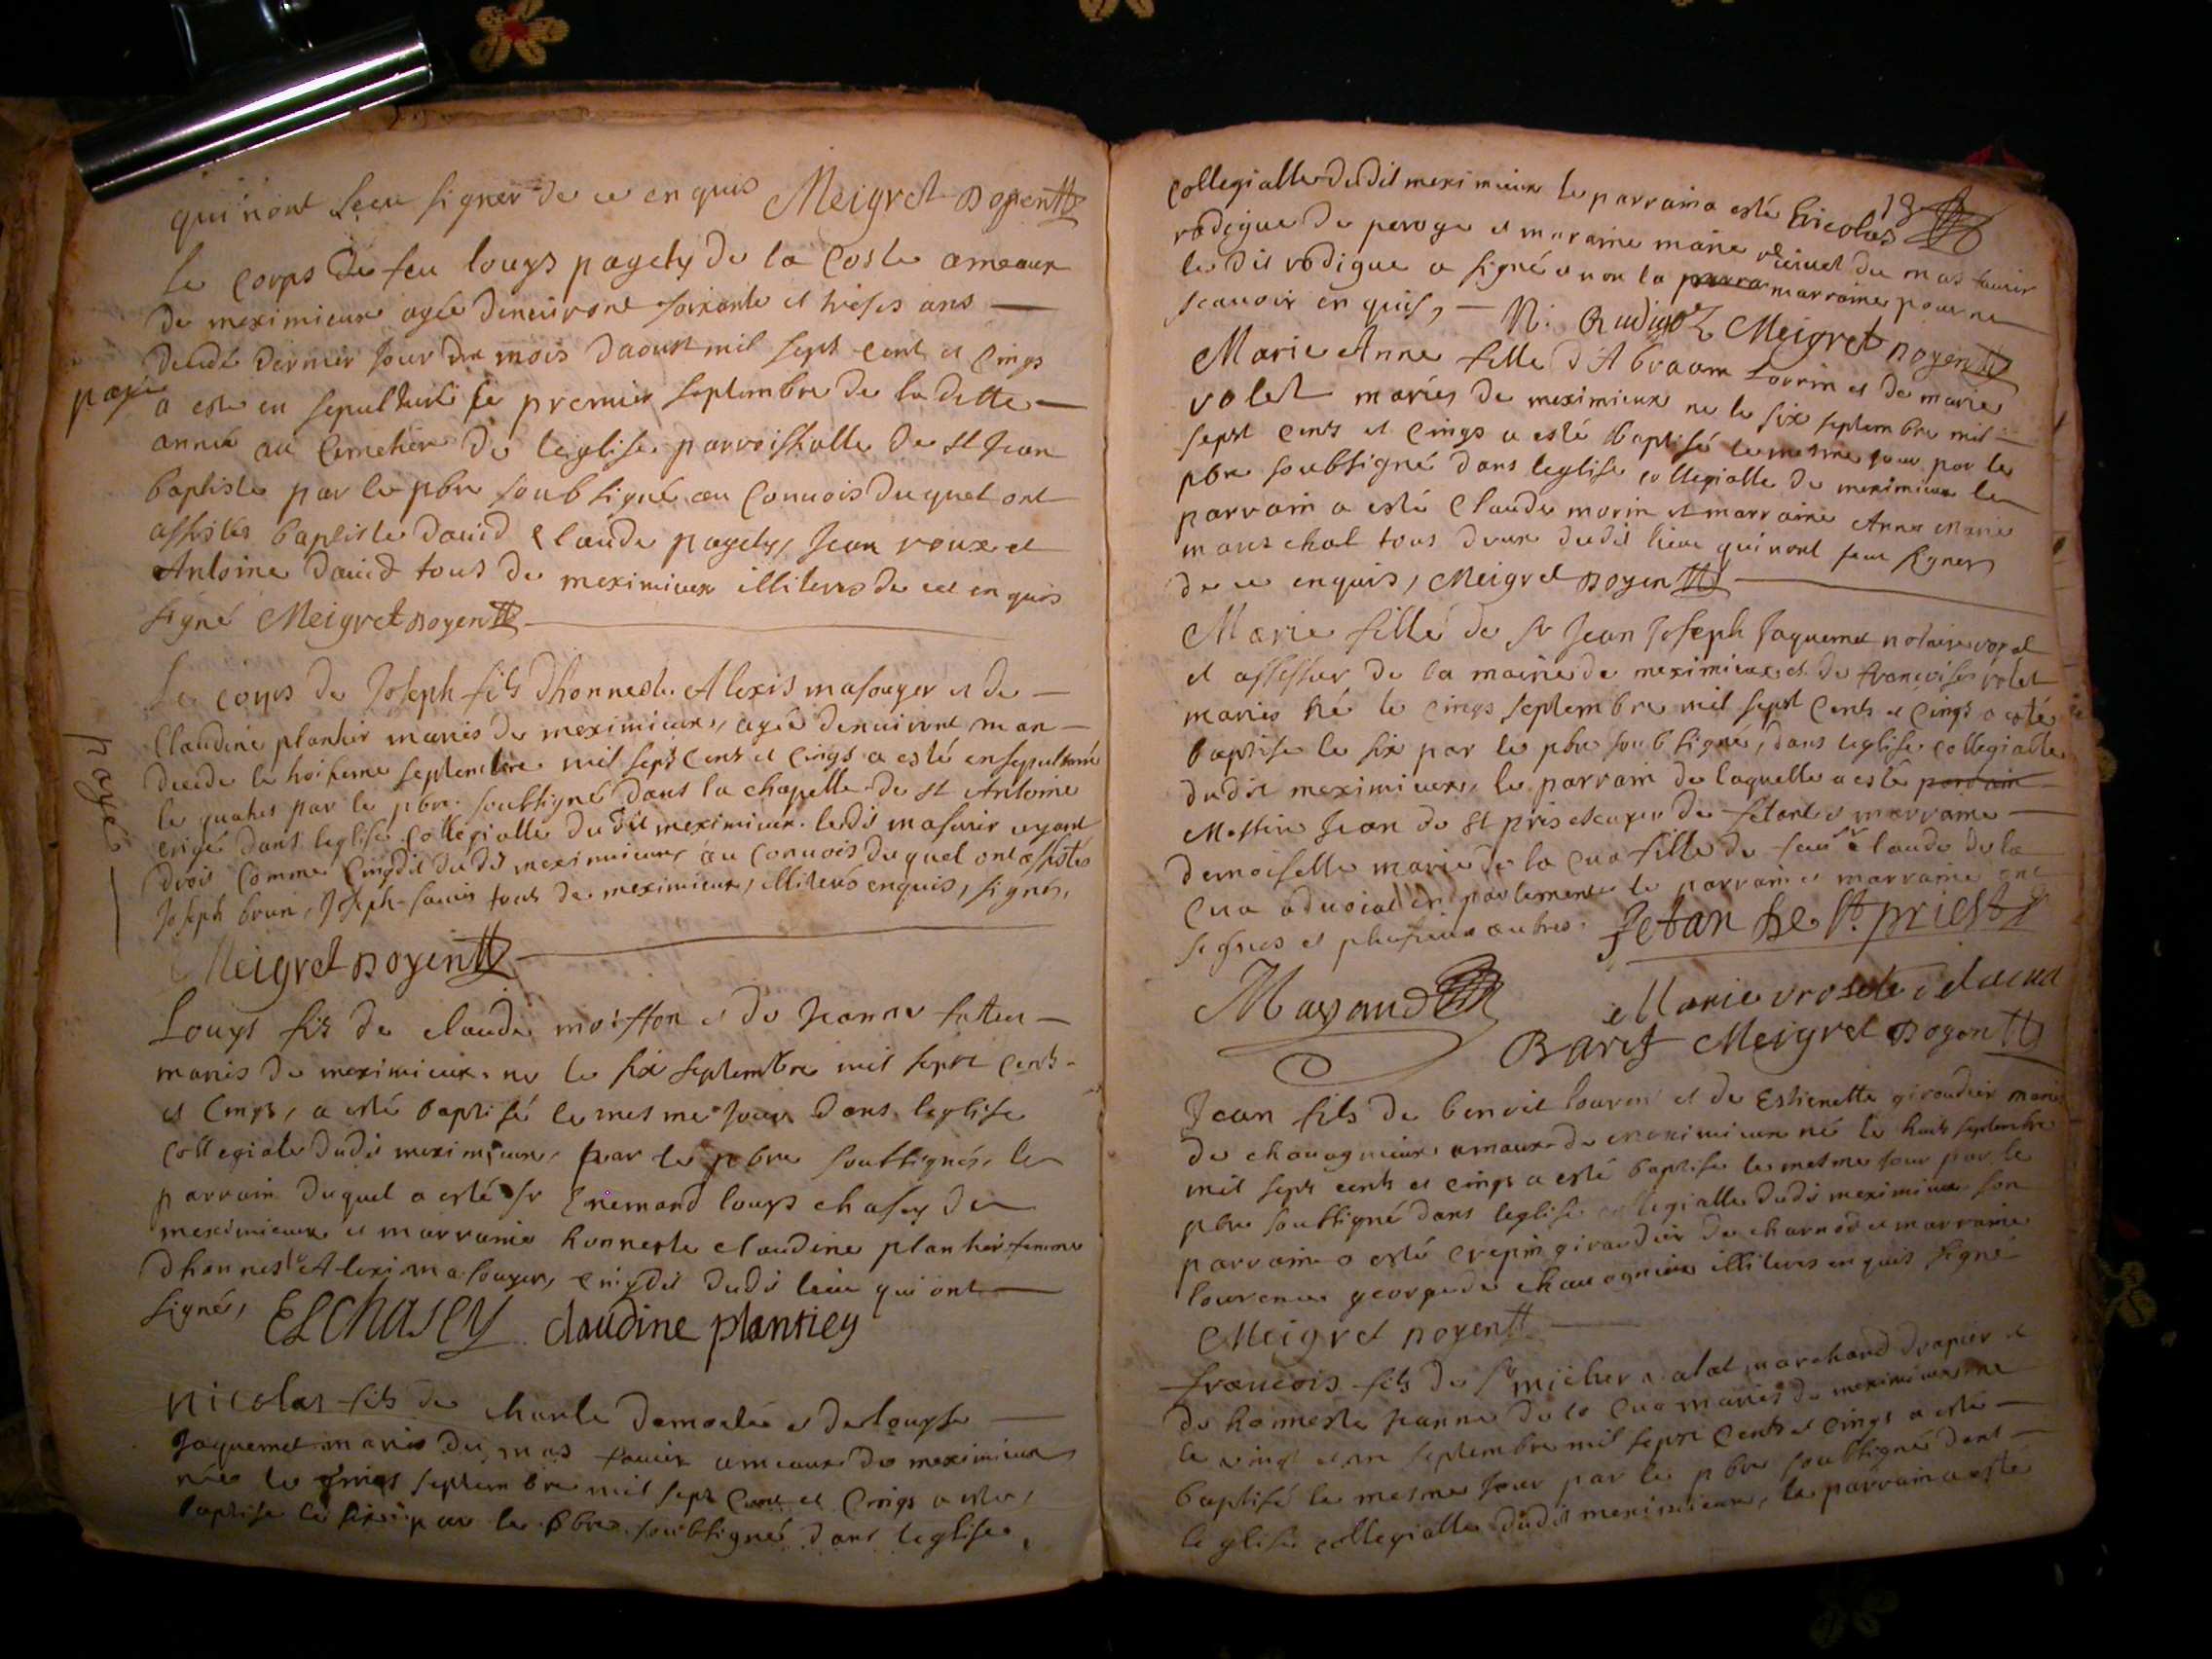 qui n'ont sceu signer de ce enquis Meigret Doyen
Le corps de feu Louys pagety de la Coste ameaux
de meximieux agée denuiront soixante et treises ans
decedé dernier jour du mois daoust mil sept cent et cinqs
payé
a esté en sepulturé le premier septembre de la ditte
année au cimetiere de leglise parroissialle de st Jean
baptiste par le pbre soubsigné au conuois duquel ont
assistés baptiste dauid Claude pagety, Jean roux et
Antoine dauid tous de meximieux illiterés de ce enquis
signé Meigret Doyen
Le corps de Joseph fils dhonneste Alexis masouyer et de
Claudine plantier mariés de meximieux, agée denuiront un an
decedé le troisieme septembre mil sept cents et cinqs a esté ensepulturé
le quatres par le pbre soubsigné dans la chapelle de st Antoine
erigé dans leglise collegialle du dit meximieux ledit masuier ayant
droit comme sindis du dit meximieux au conuois duquel ont assistés
Joseph brun, Joseph tous de meximieux, illiterés enquis, signés,
payé
Meigret Doyen
Louys fils de claude moisson et de Jeanne
mariés de meximieux ne le six septembre mil sept cents
et cinqs, a esté baptisé le mesme jour dans leglise
collegiale dudit meximieux, par le pbre soubsignés, le
parrain duquel a esté sr Enemond louys chasey de
meximieux et marraine honneste claudine plantier femme
dhonneste Alexi masouyer, sindis dudit lieu qui ont
signés, ELChasey claudine plantiey
Nicolas fils de charle et de louyse
Jaquemet mariés du mas ameaux de meximieux
née le cinqs septembre mil sept cent et cinqs a esté
baptisé le sixe par le pbre soubsigné dans leglise
18
collegialle dudit meximieux le parrain a esté Nicolas
rodigue de peroge et maraine marie du mas
le dit rodigue a signé et non la parra marraine pour ne
scauoir enquis, N. Rudigoz Meigret Doyen
Marie Anne fille d'Abraam et de marie
volet mariés de meximieux ne le six septembre mil
sept cents et cinqs a esté baptisé le mesme jour par le
pbre soubsigné dans leglise collegialle de meximieux le
parrain a esté Claude morin et marraine Anne marie
mareschal tous deux dudit lieu qui n'ont sceu signer
de ce enquis, Meigret Doyen
Marie fille de sr Jean Joseph Jaquemet notaire royal
et assesseur de la mairie de meximieux et de francoise volet
mariés né le cinqs septembre mil sept cents et cinqs a esté
baptisé le six par le pbre soubsigné, dans leglise collegialle
dudit meximieux, le parrain de laquelle a esté parrain
Messire Jean de st pris escuyer de et marraine
demoiselle marie de la Cua fille de feu sr claude de la
Cua aduocat en parlement le parrain et marraine ont
signés et plusieurs autres. Jean De St. priest
Mayaud Marie
Baret Meigret Doyen
Jean fils de benoit et de Estienette giraudier mariés
de chauagnieux amaux de meximieux né le huit septembre
mil sept cents et cinqs a esté baptisé le mesme jour par le
pbre soubsigné dans leglise collegialle dudit meximieux son
parrain a esté crepin giraudier de charnod et marraine
lourence george de chauagnieux illiterés enquis signé
Meigret Doyen
francois fils de sr michel marchand drapier et
de honneste Jeanne de la Cua mariés de meximieux ne
le vingt et un septembre mil sept cents et cinqs a esté
baptisé le mesme jour par le pbre soubsigné dans
leglise collegialle dudit meximieux, le parrain a esté